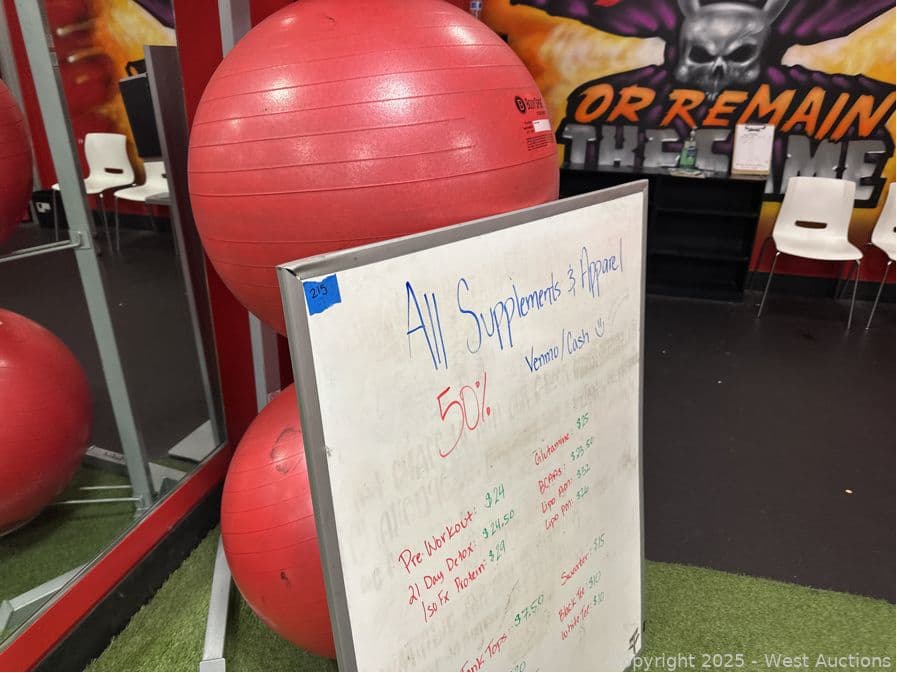 OR REMAIN
THE SAME
215
All Supplements & Apparel
Venmo/Cash
50%
Pre Workout: $24
21 Day Detox: $24.50
Iso Fx Protein: $29
Glutamine: $25
BCAAs: $23.50
Lipo AM: $32
Lipo PM: $26
Tank Tops: $7.50
Sweater: $15
Black Tee: $10
White Tee: $10
Copyright 2025 - West Auctions